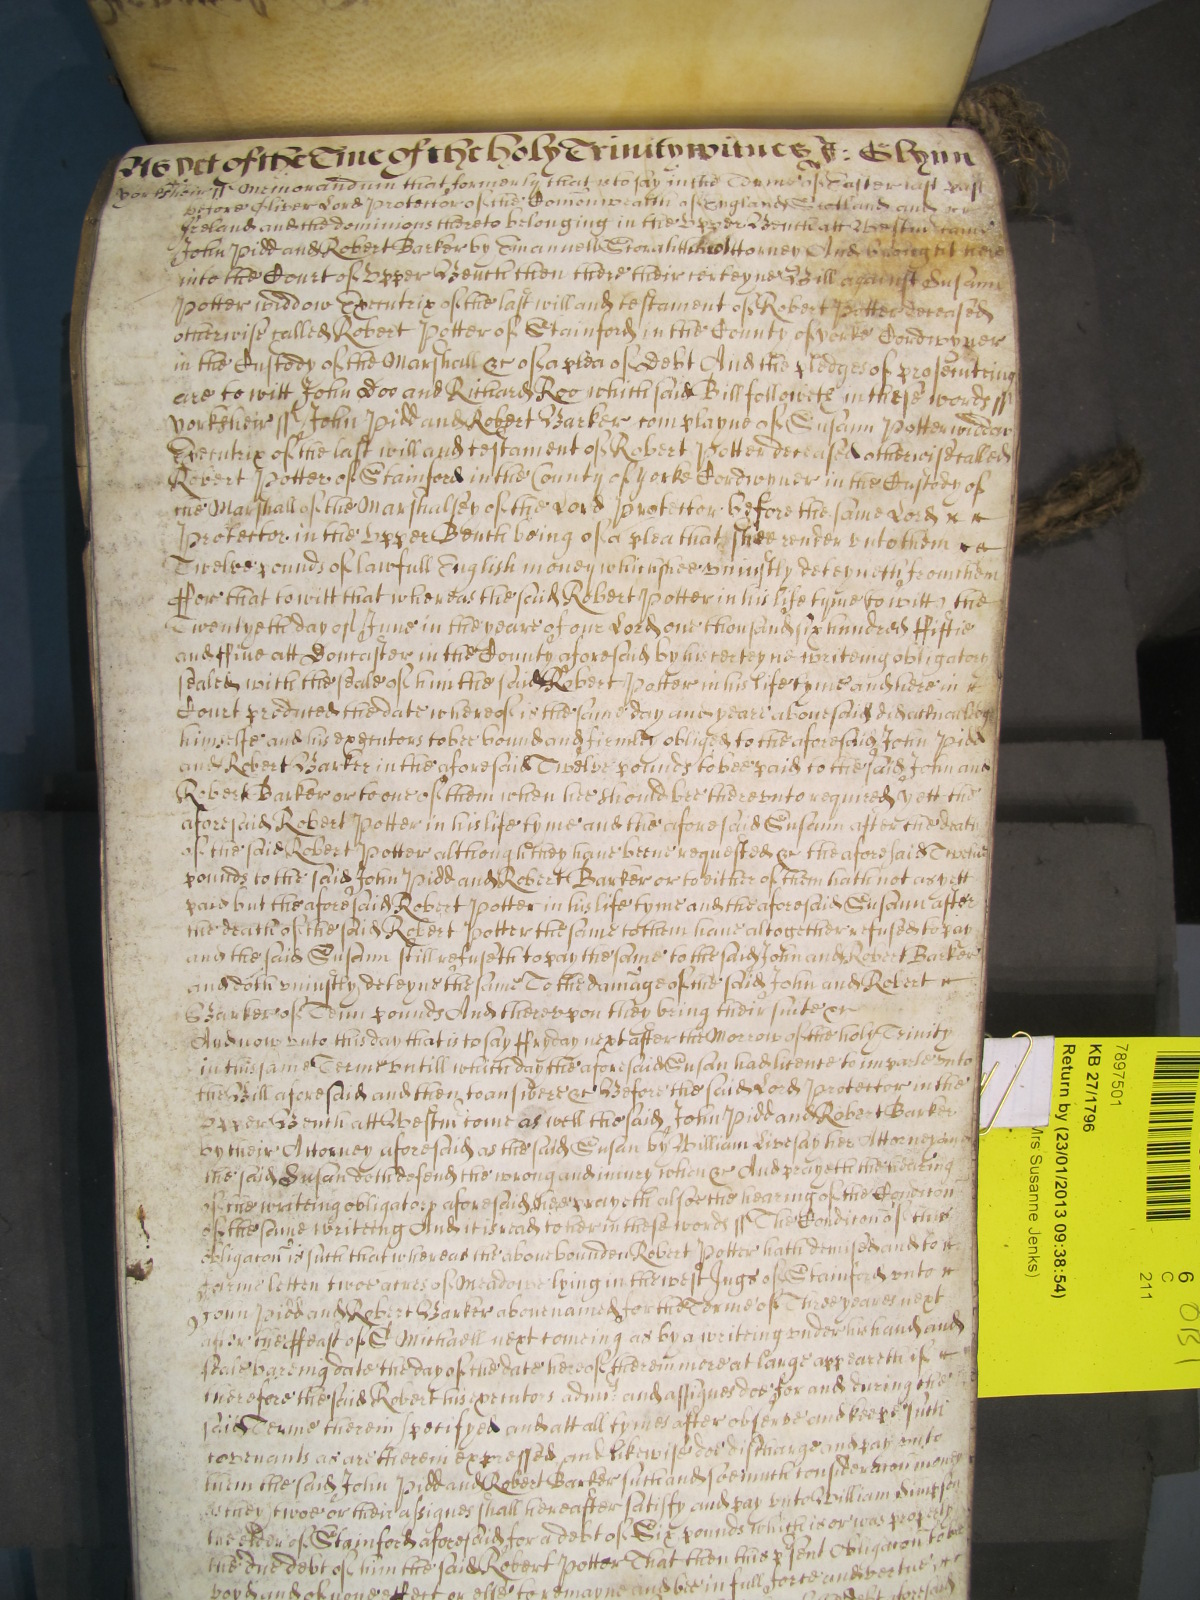 As yet of the Time of the holy Trinity witnes J: Glynn
Yorksheir ss Memorandum that formerly that is to say in the Terme of Easter last past
before Oliver Lord Protector of the Comonwealth of England Scotland and
Ireland and the dominions thereto belonging in the Upper Bench att Westm came
John Pidd and Robert Barker by Emanuell their Attorney And brought here
into the Court of Upper Bench then there their certeyne Bill against Susann
Potter widdow Executrix of the last will and testament of Robert Potter deceased
otherwise called Robert Potter of Stainford in the County of Yorke Cordwyner
in the Custody of the Marshall &c of a plea of Debt And the pledges of prosecuting
are to witt John Doo and Richard Roo which said Bill followeth in these words ss
Yorksheir ss John Pidd and Robert Barker complayne of Susann Potter widdow
Executrix of the last will and testament of Robert Potter deceased otherwise called
Robert Potter of Stainford in the County of Yorke Cordwyner in the Custody of
the Marshall of the Marshalsey of the Lord Protector before the same Lord
Protector in the Upper Bench being of a plea that shee render unto them
Twelve pounds of lawfull English money which shee uniustly deteyneth from them
ffor that to witt that whereas the said Robert Potter in his life tyme to witt the
Twentyeth day of June in the yeare of our Lord one thousand six hundred ffiftie
and ffive att Doncaster in the County aforesaid by his certeyne writeing obligatory
sealed with the seale of him the said Robert Potter in his life tyme and here in
Court produced the date whereof is the same day and yeare abovesaid did acknowledge
himselfe and his executors to bee bound and firmley obliged to the aforesaid John Pidd
and Robert Barker in the aforesaid Twelve pounds to bee paid to the said John and
Robert Barker or to one of them when hee should bee thereunto required yett the
aforesaid Robert Potter in his life tyme and the aforesaid Susann after the death
of the said Robert Potter although they have beene requested &c the aforesaid Twelve
pounds to the said John Pidd and Robert Barker or to either of them hath not as yett
paid but the aforesaid Robert Potter in his life tyme and the aforesaid Susann after
the death of the said Robert Potter the same to them have altogether refused to pay
and the said Susann still refuseth to pay the same to the said John and Robert Barker
and doth uniustly deteyne the same To the damage of the said John and Robert
Barker of Tenn pounds And thereupon they bring their suite &c
And now unto this day that is to say ffryday next after the Morrow of the holy Trinity
in this same Terme untill which day the aforesaid Susan had licence to imparle unto
the Bill aforesaid and then to answere &c Before the said Lord Protector in the
Upper Bench att Westm come as well the said John Pidd and Robert Barker
by their Attorney aforesaid as the said Susan by William Livesay her Attorney and
the said Susan doth defend the wrong and iniury when &c And prayeth the hearing
of the writeing obligatory aforesaid shee prayeth alsoe the hearing of the Condicon
of the same writeing And it is read to her in these words ss The Condicon of this
obligacon is such that whereas the above bounden Robert Potter hath demised and to
farme letten twoe acres of Meadowe lying in the west Ings of Stainford unto
John Pidd and Robert Barker above named for the Terme of Three yeares next
after the ffeast of St Michaell next comeing as by a writeing under his hand and
seale bareing date the day of the date hereof therein more at large appeareth if
therefore the said Robert his executors admrs and assignes doe for and during the
said Terme therein specifyed and att all tymes after observe and keepe such
covenants as are therein expressed and likewise doe discharge and pay unto
them the said John Pidd and Robert Barker such and soe much consideracon money
as they twoe or their assignes shall hereafter satisfy and pay unto William Simpson
the elder of Stainford aforesaid for a debt of Six pounds which is or was properly
the due debt of him the said Robert Potter That then this psent Obligacon to be
voyd and of none effect or else to remayne and bee in full force and vertue
7897501
KB 27/1796
Return by (23/01/2013 09:38:54)
Mrs Susanne Jenks)
6
C
211